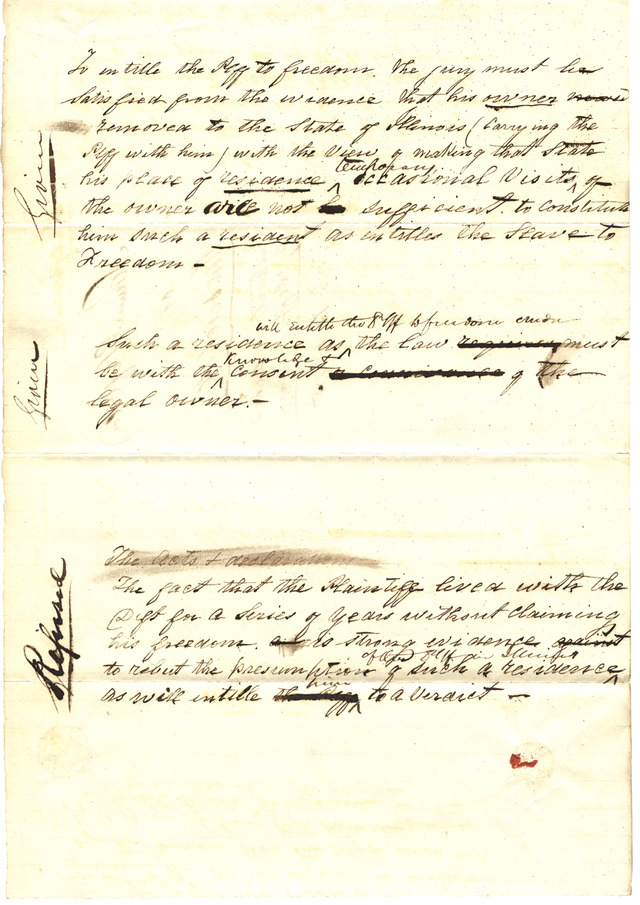 To intitle the Plff to freedom. the jury must be
satisfied from the evidence that his owner
removed to the State of Illinois (carrying the
Plff with him) with the view of making that State
his place of residence temporary occasional Visits, of
the owner are not sufficient. to constitute
him such a resident as intitles the Slave to
Freedom —
Given
will intitle the Plff to freedom under
Such a residence as the law required must
be with the Knowledge & consent or connivance of the
legal owner. —
Given
The acts &
The fact that the Plaintiff lived with the
Deft for a series of years without claiming
his freedom. is strong evidence against
to rebut the presumption of such a residence of the Plff in Illinois
as will intitle the Plff him to a verdict —
Refused